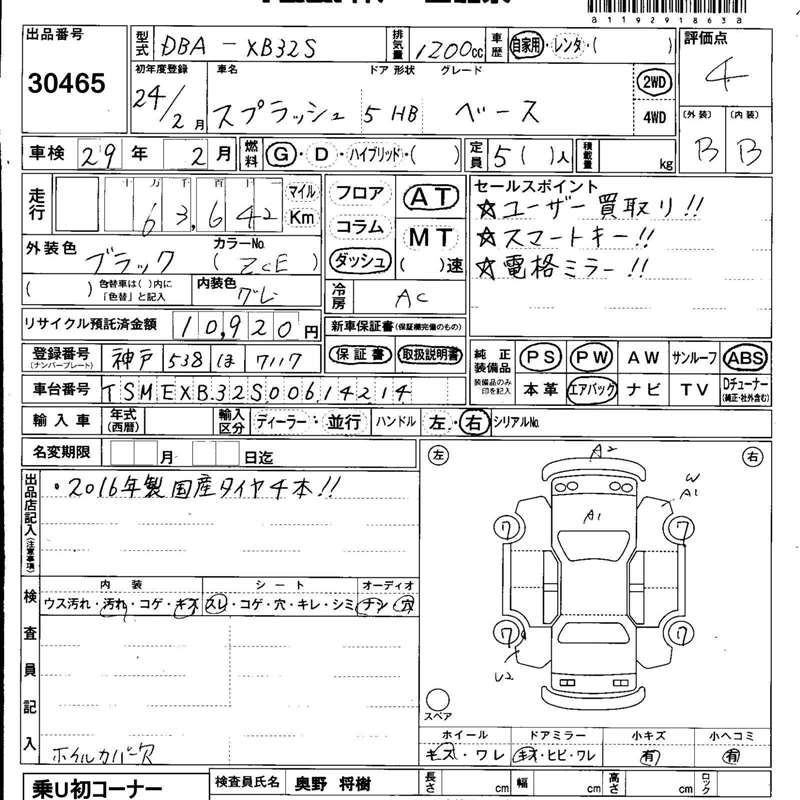 a119291863a
出品番号
30465
型式 DBA - XB32S 排気量 1200cc 車歴 自家用・レンタ・( ) 評価点
4
初年度登録 車名 ドア 形状 グレード
24/2月 スプラッシュ 5 HB ベース 2WD
4WD
(外装) (内装)
B B
車検 29年 2月 燃料 G・D・ハイブリッド・( ) 定員 5( )人 積載量 kg
走行 十万千百十一 マイル
63,642 Km
フロア AT
コラム MT
ダッシュ ( )速
セールスポイント
☆ユーザー買取り!!
☆スマートキー!!
☆電格ミラー!!
外装色 ブラック カラーNo.
( ZCE )
( ) 色替車は( )内に「色替」と記入 内装色 グレ
冷房 AC
リサイクル預託済金額 10,920円
新車保証書(保証欄完備のもの)
保証書 取扱説明書
登録番号(ナンバープレート) 神戸 538 ほ 7117
車台番号 TSMEXB32S00614214
純正装備品 装備品のみ印を記入 PS PW AW サンルーフ ABS
本革 エアバック ナビ TV Dチューナー(純正・社外含む)
輸入車 年式(西暦) 輸入区分 ディーラー・並行 ハンドル 左・右 シリアルNo.
名変期限 月 日迄
出品店記入(注意事項)
・2016年製国産タイヤ4本!!
左 右
A2
W
A1
A1
7 7
7 7
U2
スペア
検査員記入
内装 シート オーディオ
ウス汚れ・汚れ・コゲ・キズ スレ・コゲ・穴・キレ・シミ ナシ・穴
ホイルカバー欠
ホイール ドアミラー 小キズ 小ヘコミ
キズ・ワレ キズ・ヒビ・ワレ 有 有
乗U初コーナー
検査員氏名 奥野 将樹 長さ cm 幅 cm 高さ cm ロック